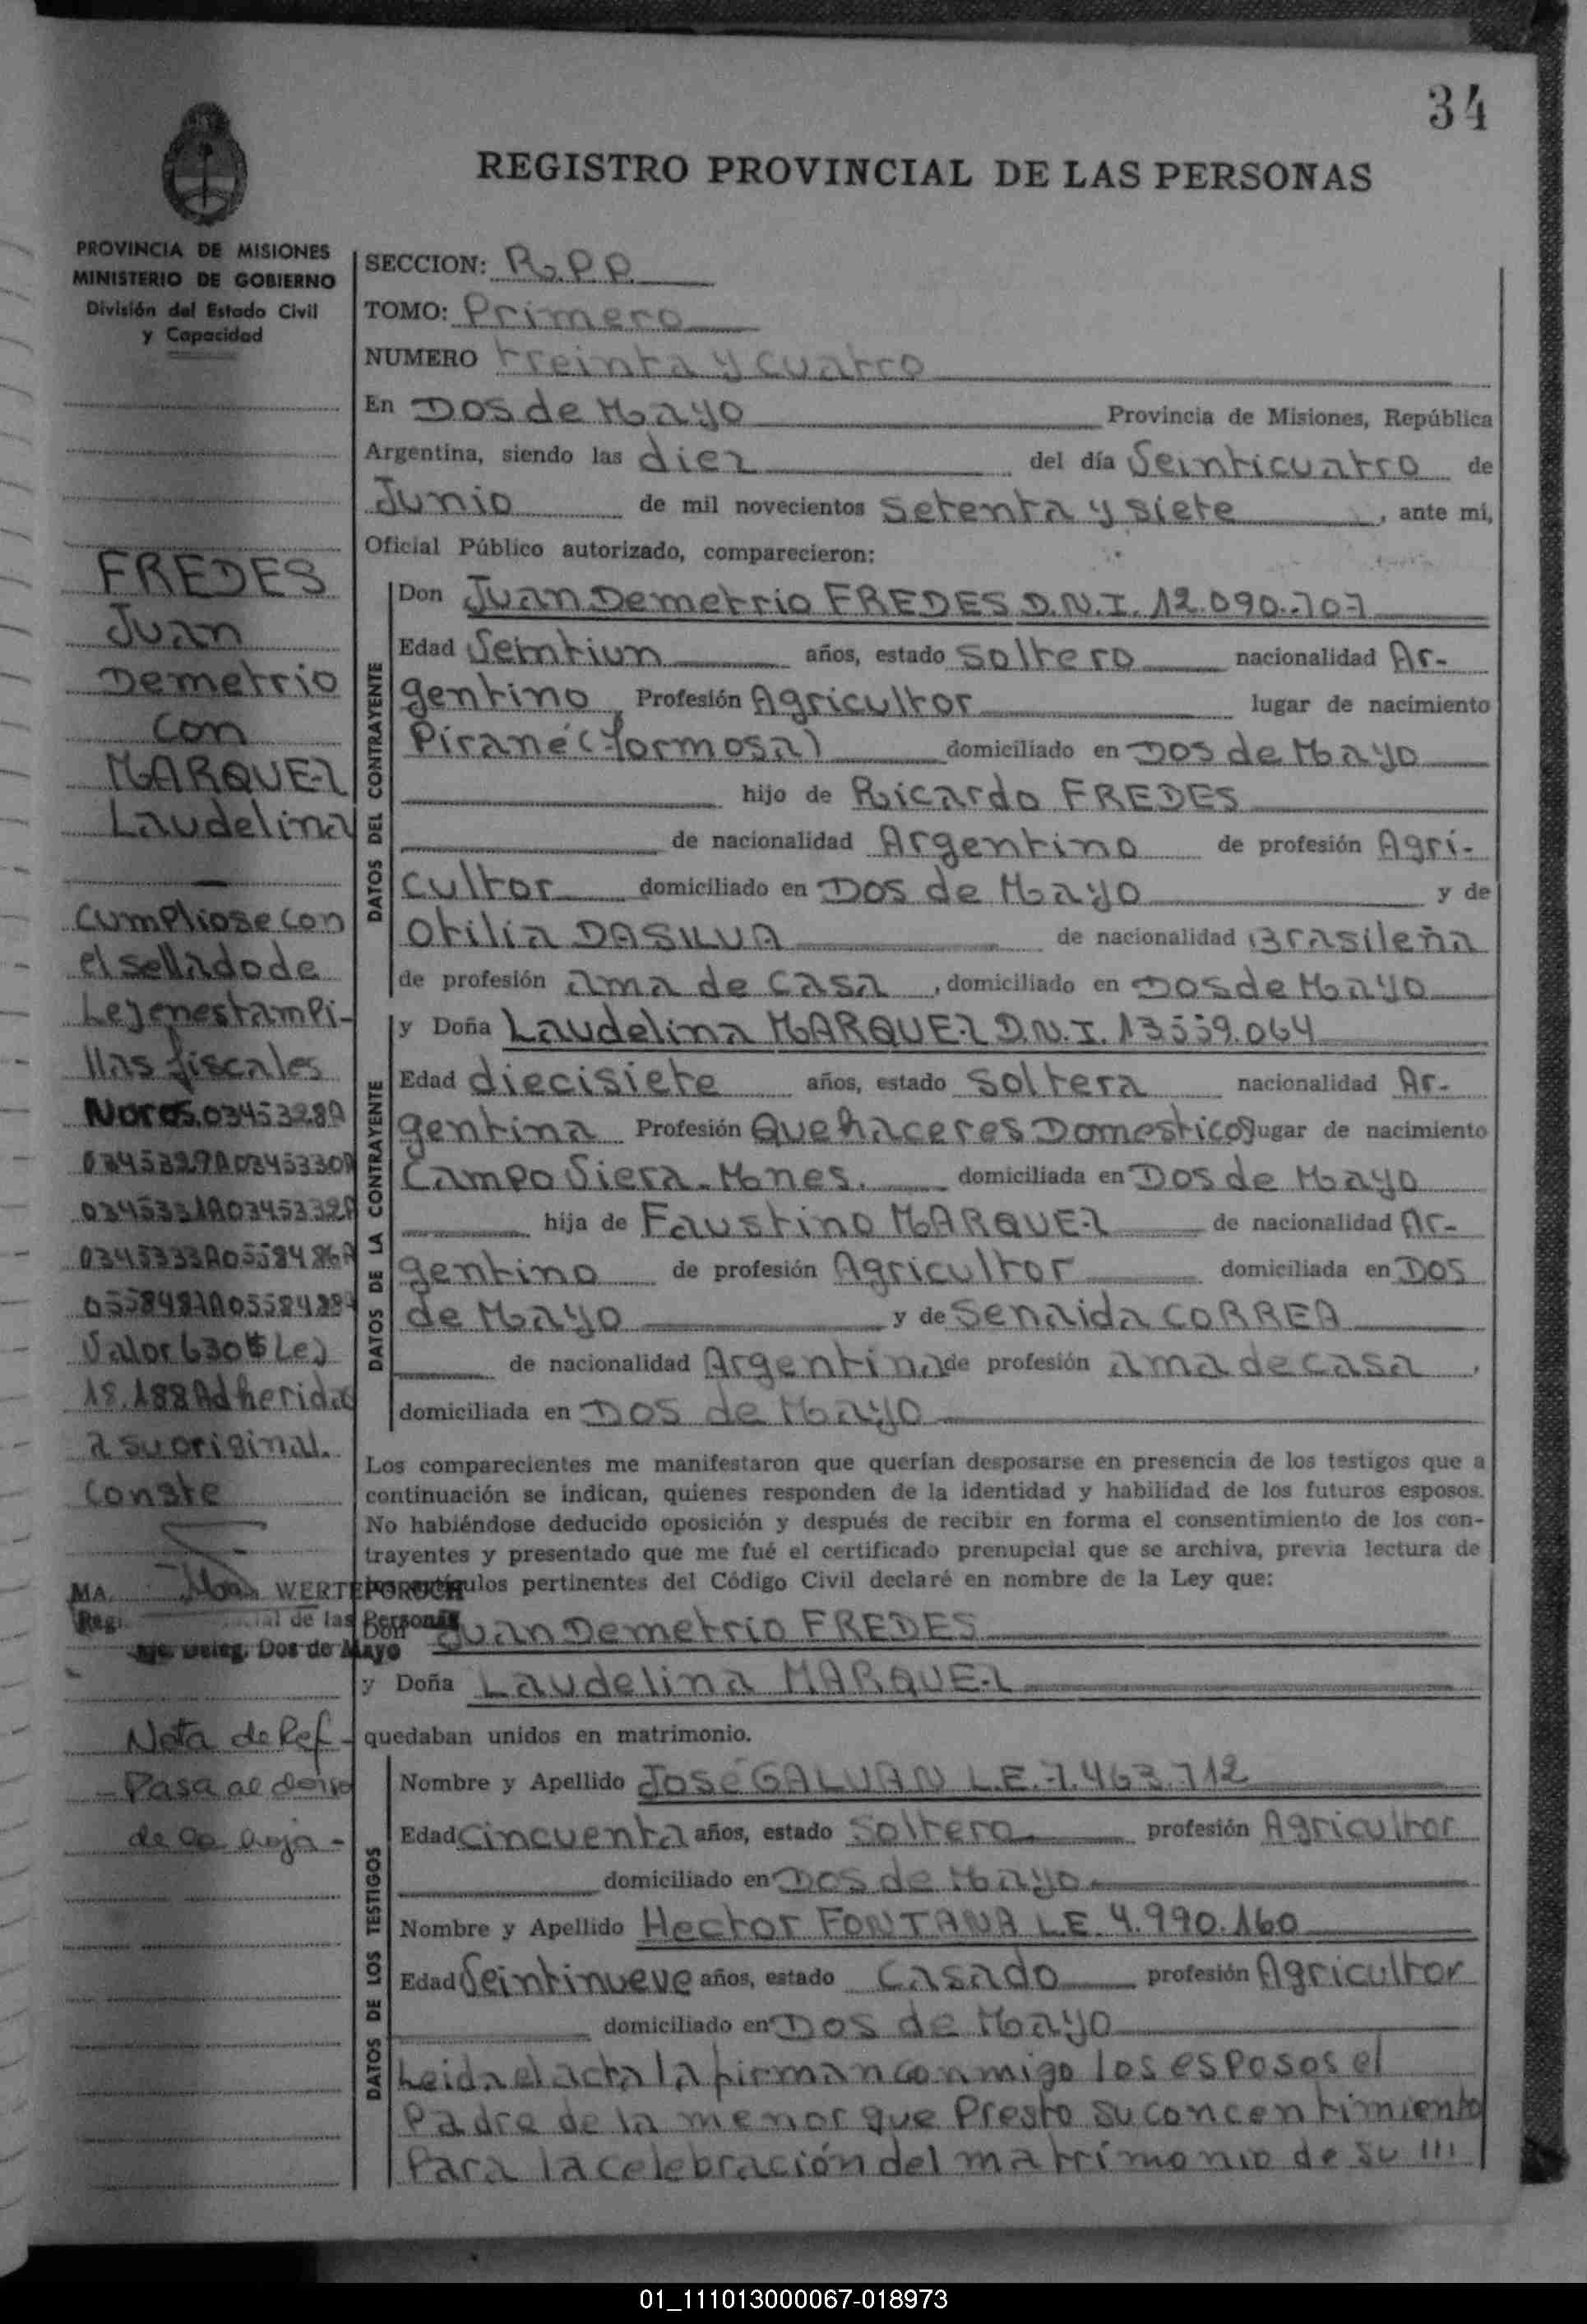 34
REGISTRO PROVINCIAL DE LAS PERSONAS
PROVINCIA DE MISIONES
MINISTERIO DE GOBIERNO
División del Estado Civil
y Capacidad
FREDES
Juan
Demetrio
con
MARQUEZ
Laudelina
Cumpliose con
el sellado de
Ley en estampi-
llas fiscales
Nores. 0345328A
0345329A0345330A
0345331A0345332A
0345333A0558486A
0558487A0558488A
Valor 630 $ Ley
18.188 Adherida
a su original.
Conste
MA. WERTEPORUCH
Regi. ial de las Personas
Deleg. Dos de Mayo
Nota de Ref-
- Pasa al dorso
de la hoja -
SECCION: R.P.P.
TOMO: Primero
NUMERO treinta y cuatro
En Dos de Mayo Provincia de Misiones, República
Argentina, siendo las diez del día Veinticuatro de
Junio de mil novecientos setenta y siete, ante mí,
Oficial Público autorizado, comparecieron:
DATOS DEL CONTRAYENTE
Don Juan Demetrio FREDES D.N.I. 12.090.707
Edad Veintiun años, estado soltero nacionalidad Ar-
gentino Profesión Agricultor lugar de nacimiento
Pirané (formosa) domiciliado en Dos de Mayo
hijo de Ricardo FREDES
de nacionalidad Argentino de profesión Agri-
cultor domiciliado en Dos de Mayo y de
Otilia DASILVA de nacionalidad Brasileña
de profesión ama de casa, domiciliado en Dos de Mayo
DATOS DE LA CONTRAYENTE
y Doña Laudelina MARQUEZ D.N.I. 13559.064
Edad diecisiete años, estado soltera nacionalidad Ar-
gentina Profesión Quehaceres Domesticos lugar de nacimiento
Campo Viera. Mones. domiciliada en Dos de Mayo
hija de Faustino MARQUEZ de nacionalidad Ar-
gentino de profesión Agricultor domiciliada en Dos
de Mayo y de Senaida CORREA
de nacionalidad Argentina de profesión ama de casa,
domiciliada en Dos de Mayo
Los comparecientes me manifestaron que querían desposarse en presencia de los testigos que a
continuación se indican, quienes responden de la identidad y habilidad de los futuros esposos.
No habiéndose deducido oposición y después de recibir en forma el consentimiento de los con-
trayentes y presentado que me fué el certificado prenupcial que se archiva, previa lectura de
los artículos pertinentes del Código Civil declaré en nombre de la Ley que:
Don Juan Demetrio FREDES
y Doña Laudelina MARQUEZ
quedaban unidos en matrimonio.
DATOS DE LOS TESTIGOS
Nombre y Apellido José GALVAN L.E. 7.463.712
Edad Cincuenta años, estado Soltero profesión Agricultor
domiciliado en Dos de Mayo
Nombre y Apellido Hector FONTANA L.E. 4.990.160
Edad Veintinueve años, estado Casado profesión Agricultor
domiciliado en Dos de Mayo
Leida el acta la firman conmigo los esposos el
Padre de la menor que Presto su concentimiento
Para la celebración del matrimonio de su !!!
01_111013000067-018973